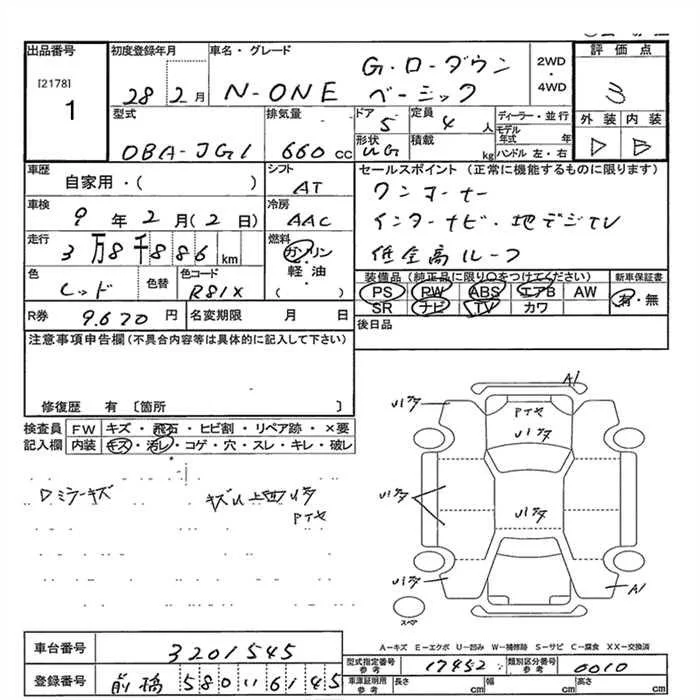 出品番号 初度登録年月 車名・グレード 2WD・4WD 評価点
[2178]
1
28 2月 N-ONE G・ローダウン ベーシック 3
型式 排気量 ドア 5 定員 4人 ディーラー・並行 外装 内装
DBA-JG1 660cc 形状 積載 kg モデル年式 年 ハンドル 左・右
車歴 シフト セールスポイント (正常に機能するものに限ります)
自家用・( ) AT ワンオーナー
車検 冷房
9年2月(2日) AAC インターナビ・地デジTV
走行 燃料
3万8千886km ガソリン 低全高ルーフ
軽油
( )
色 色替 色コード 装備品(純正品に限り○をつけてください) 新車保証書
レッド R81X PS PW ABS エアB AW 有・無
SR ナビ TV カワ
R券 9.670円 名変期限 月 日 後日品
注意事項申告欄(不具合内容等は具体的に記入して下さい)
修復歴 有 〔箇所 〕
検査員 FW キズ・飛石・ヒビ割・リペア跡・×要
記入欄 内装 キズ・汚レ・コゲ・穴・スレ・キレ・破レ
A1
A1
スペア
A-キズ E-エクボ U-凹み W-補修跡 S-サビ C-腐食 XX-交換済
車台番号 3201545
型式指定番号 参考 17452 類別区分番号 参考 0010
登録番号 前橋 580 い 6145
車庫証明用 参考 長さ cm 幅 cm 高さ cm